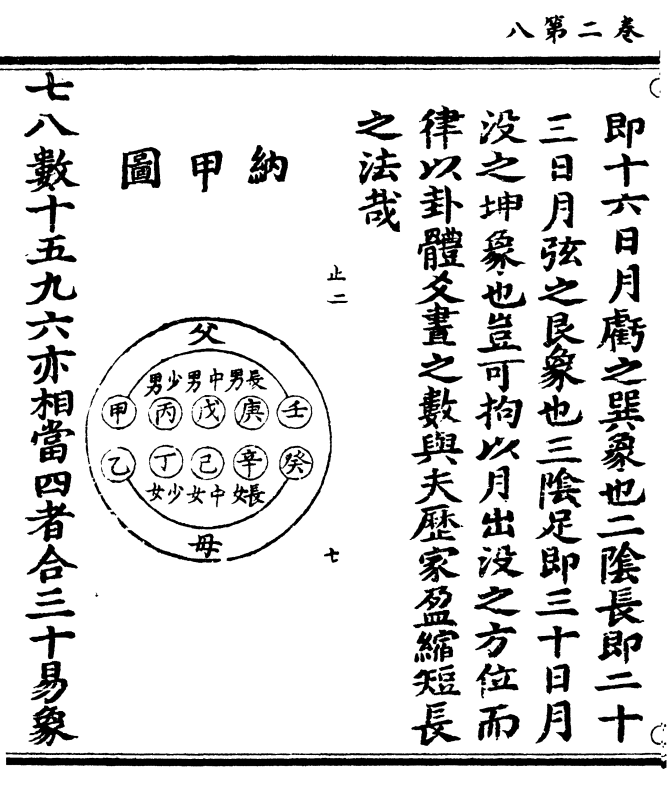 卷二第八
即十六日月虧之巽象也二陰長即二十
三日月弦之艮象也三陰足即三十日月
没之坤象也豈可拘以月出没之方位而
律以卦體爻畫之數與夫歷家盈縮短長
之法哉
止二
七
納甲圖
父
長男中男少男
壬庚戊丙甲
癸辛己丁乙
長女中女少女
母
七八數十五九六亦相當四者合三十易象